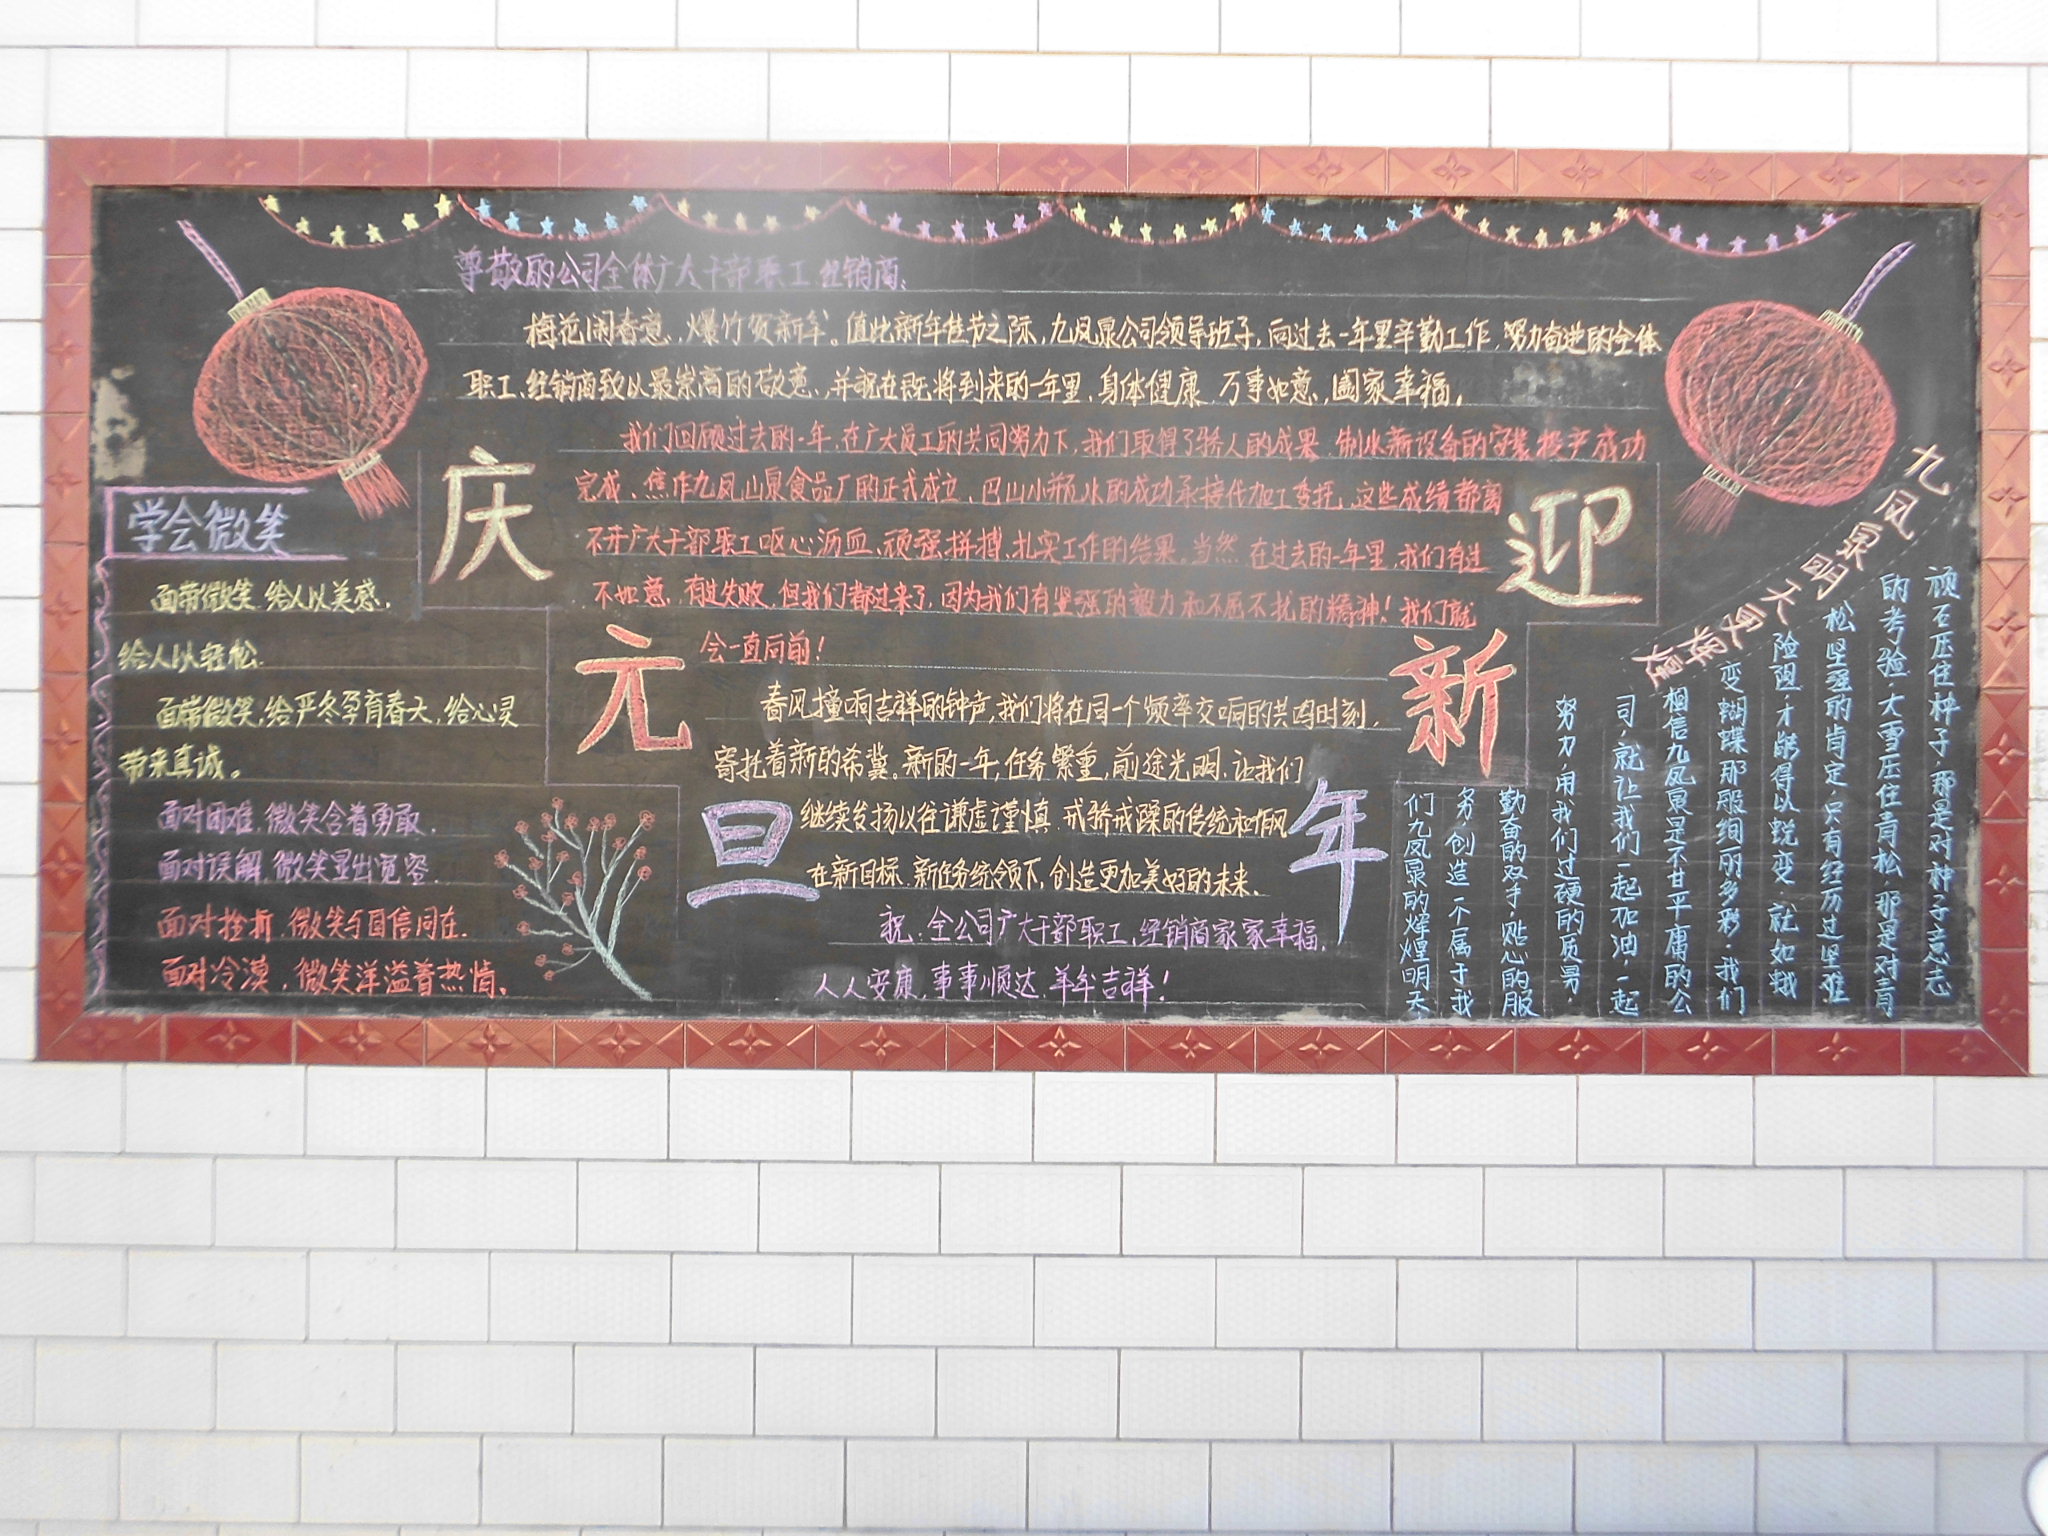 学会微笑
面带微笑,给人以美感,
给人以轻松.
面带微笑,给严冬孕育春天,给心灵
带来真诚。
面对困难,微笑含着勇敢.
面对误解,微笑显出宽容.
面对挫折,微笑与自信同在.
面对冷漠,微笑洋溢着热情。
庆
元
旦
迎
新
年
尊敬的公司全体广大干部职工、经销商:
梅花闹春意,爆竹贺新年。值此新年佳节之际,九凤泉公司领导班子,向过去一年里辛勤工作,努力奋进的全体
职工、经销商致以最崇高的敬意,并祝在既将到来的一年里,身体健康,万事如意,阖家幸福。
我们回顾过去的一年,在广大员工的共同努力下,我们取得了骄人的成果.制水新设备的安装投产成功
完成、焦作九凤山泉食品厂的正式成立、巴山小瓶水的成功承接代加工委托,这些成绩都离
不开广大干部职工呕心沥血、顽强拼搏、扎实工作的结果。当然,在过去的一年里,我们有过
不如意,有过失败,但我们都过来了,因为我们有坚强的毅力和不屈不扰的精神!我们就
会一直向前!
春风撞响吉祥的钟声,我们将在同一个频率交响的共鸣时刻,
寄托着新的希冀。新的一年,任务繁重,前途光明,让我们
继续发扬以往谦虚谨慎,戒骄戒躁的传统和作风
在新目标、新任务统领下,创造更加美好的未来.
祝:全公司广大干部职工、经销商家家幸福,
人人安康,事事顺达,羊年吉祥!
九凤泉明天更辉煌
顽石压住种子,那是对种子意志
的考验,大雪压住青松,那是对青
松坚强的肯定,只有经历过坚难
险阻才能得以蜕变,就如蛾
变蝴蝶那般绚丽多彩.我们
相信九凤泉是不甘平庸的公
司,就让我们一起加油,一起
努力,用我们过硬的质量,
勤奋的双手,贴心的服
务创造一个属于我
们九凤泉的辉煌明天.